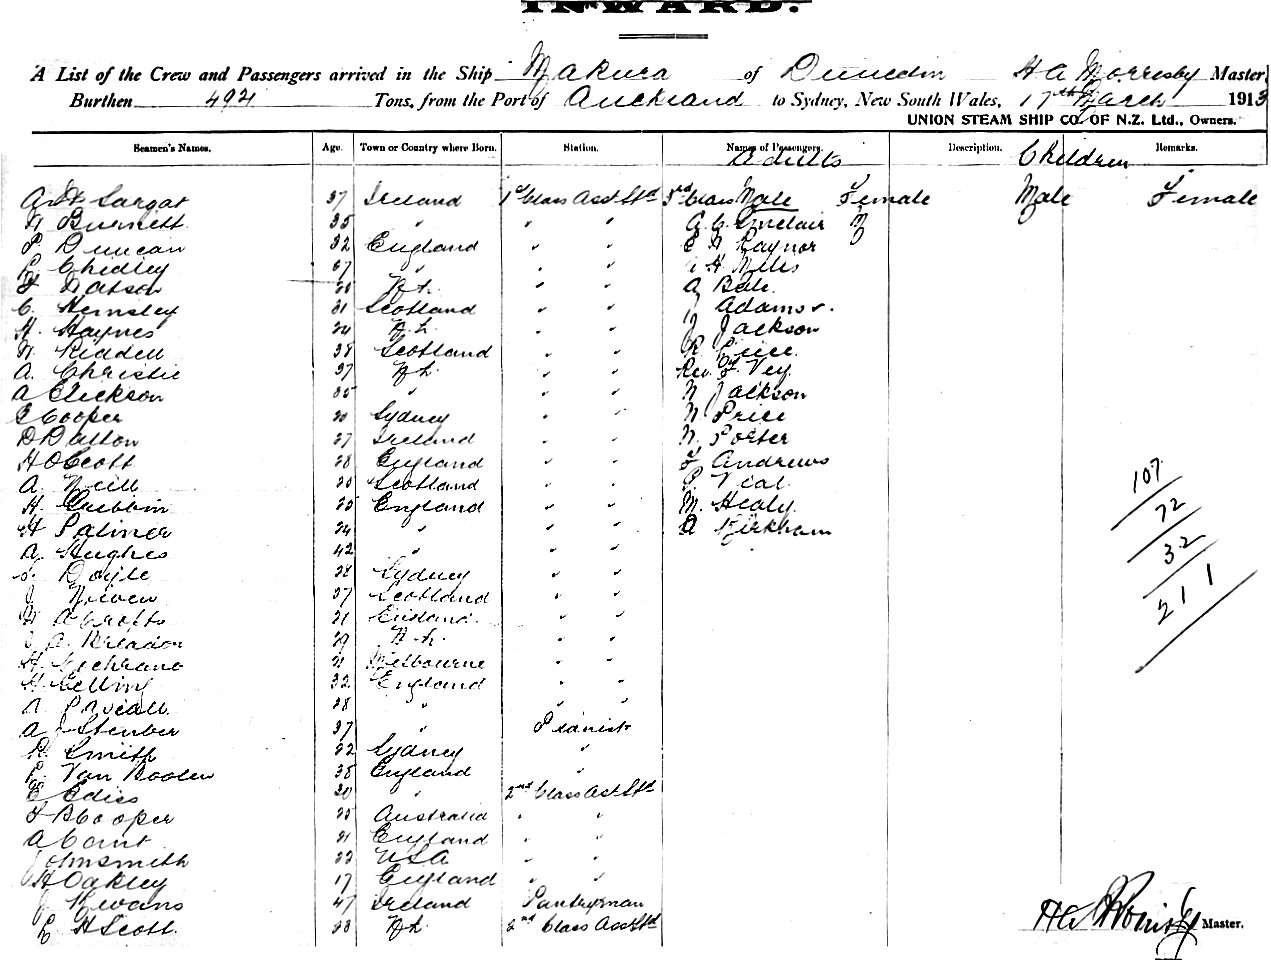 INWARD.
A List of the Crew and Passengers arrived in the Ship Makura of Dunedin H A Morresby Master,
Burthen 4921 Tons, from the Port of Auckland to Sydney, New South Wales, 17th March 1913
UNION STEAM SHIP CO. OF N.Z. Ltd., Owners.
Seamen's Names. Age. Town or Country where Born. Station. Names of Passengers. Description. Remarks.
Adults Children
37 Ireland 1st Class Asst Std 3rd Class Male Female Male Female
Burnett 35 " " " A. C. Sinclair
P. Duncan 32 England " " Raynor
Chidley " " " H
Watson " "
C. Hemsley 31 Scotland " " Adams
H. Haynes 24 N.Z. " " Jackson
Riddell 38 Scotland " " Price
A. Christie 37 N.Z. " " Rev. Vey
A Erickson 35 " " " Jackson
Cooper 20 Sydney " " Price
D Dalton 37 Ireland " " Porter
H O Scott 28 England " " Andrews
A. Neill 20 Scotland " " P. Vial
H. 25 England " " M. Healy
H Palmer 24 " " " A Kirkham
A. Hughes 42 " " "
Doyle 28 Sydney " "
J. Niven 37 Scotland " "
A Crofts 21 England " "
A. Breadon 29 N.Z. " "
H. Cochrane 21 Melbourne " "
H Gelling 32 England " "
28 " " "
A J Stenber 37 " Pianist
R. Smith 22 Sydney "
Van Boolen 38 England "
E Ediss 20 " 2nd Class Asst Std
F B Cooper 25 Australia " "
A Cant 21 England " "
John Smith 22 USA " "
H Oakley 17 England " "
J Kwans 47 Ireland Pantryman
H Scott 23 N.Z. 2nd Class Asst Std
107
72
32
211
Master.